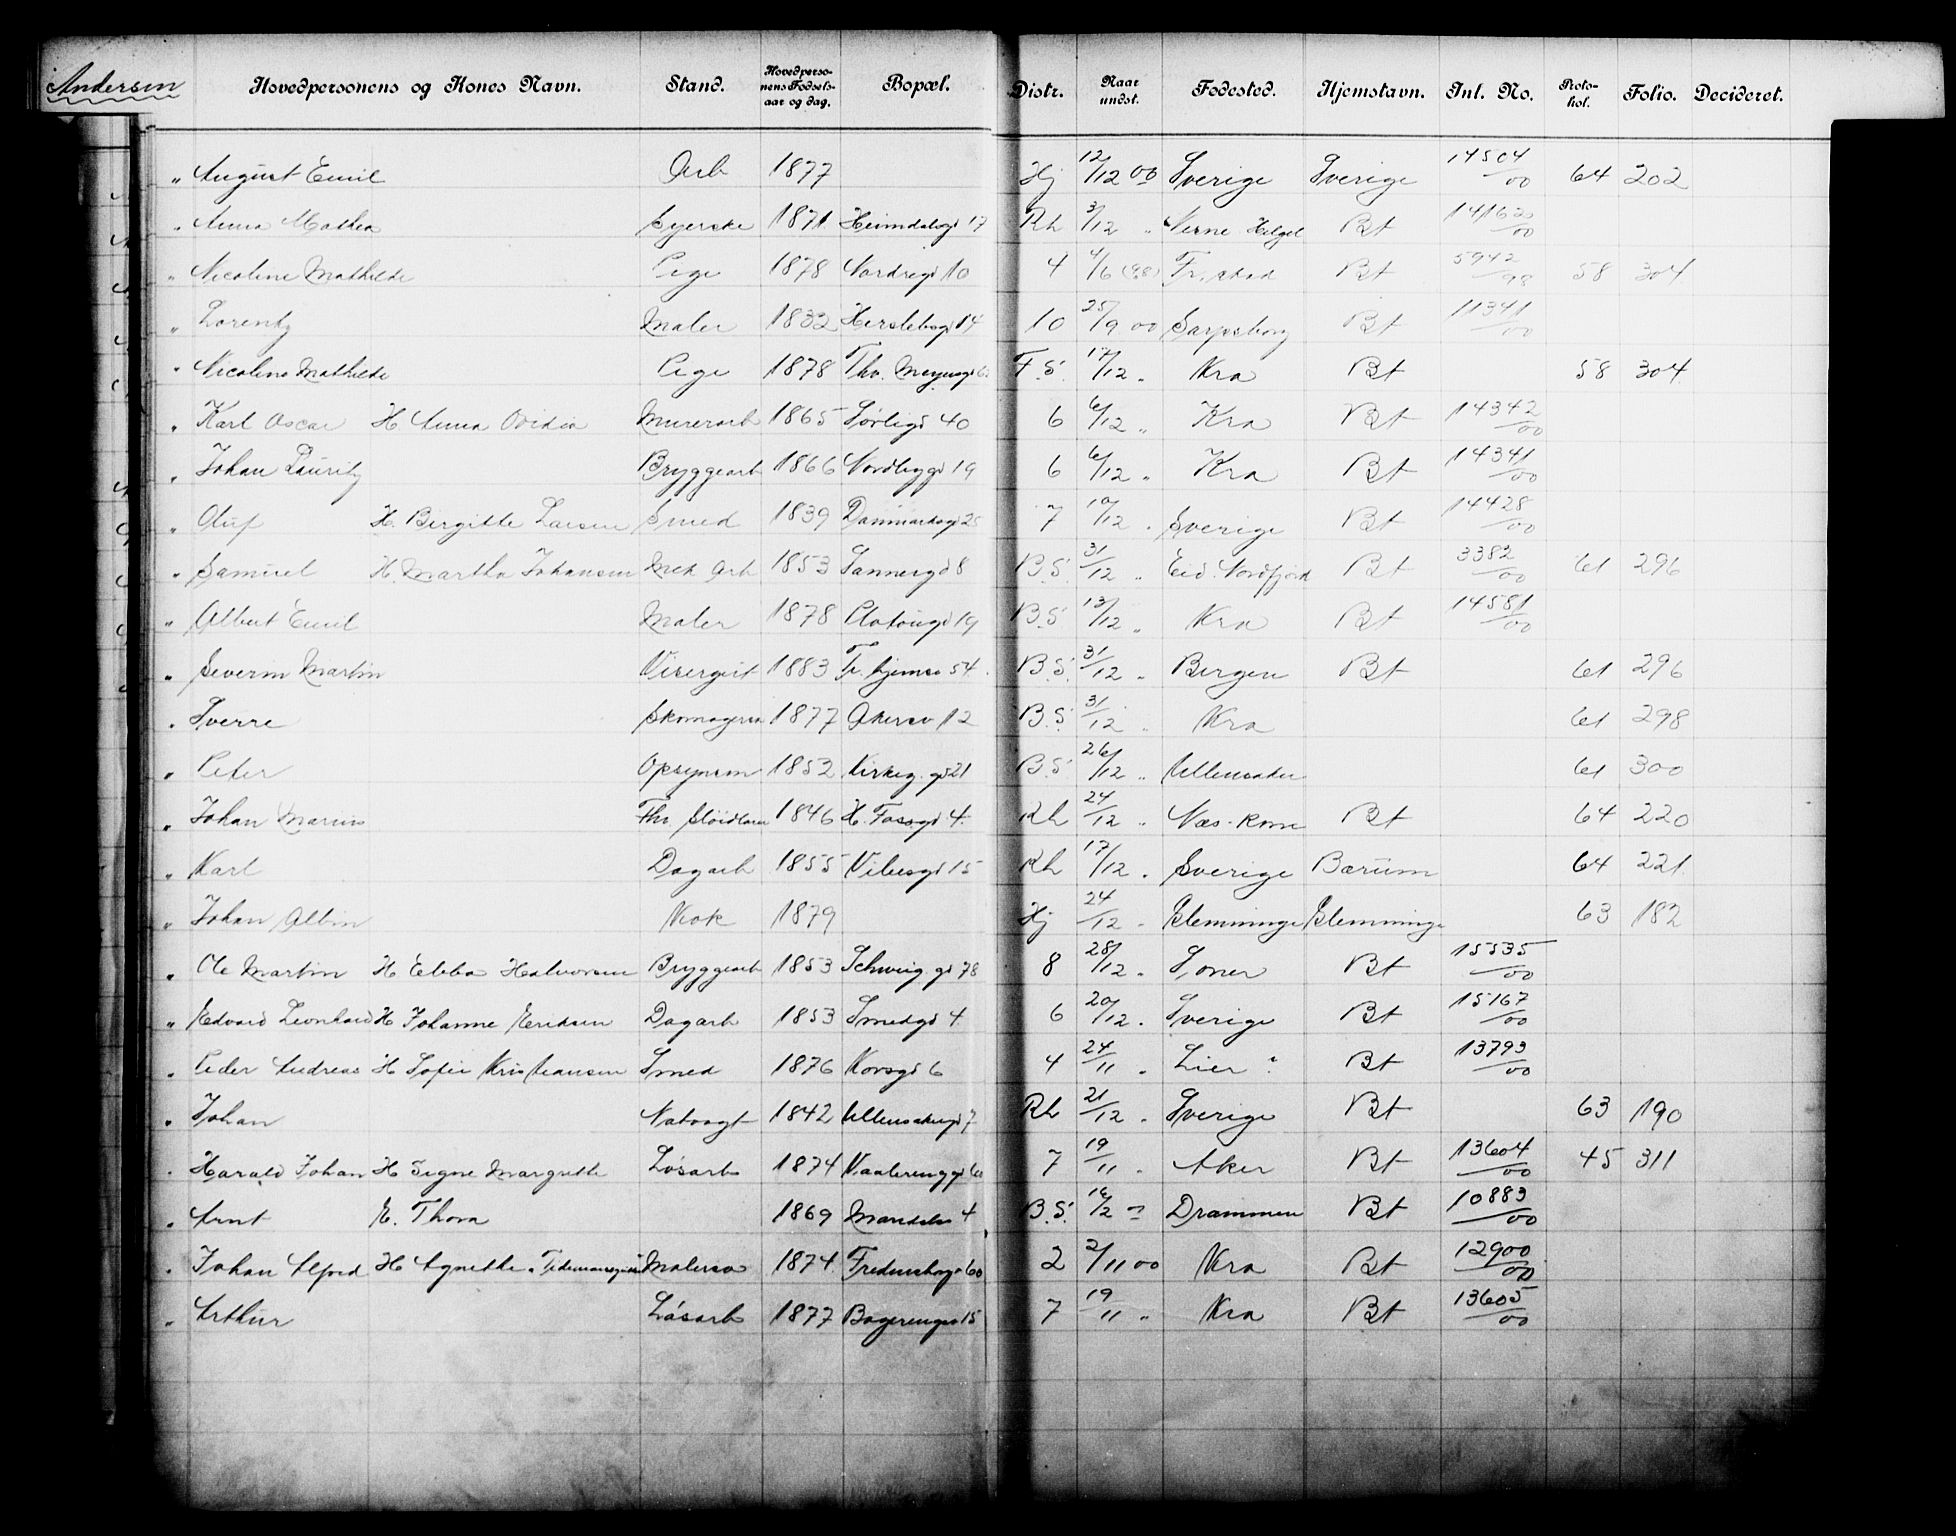 Andersen Hovedpersonens og Kones Navn. Stand. Hovedperso-nens Fødsels-aar og dag. Bopæl. Distr. Naar undst. Fødested. Hjemstavn. Jnl. No. Proto-kol. Folio. Decideret.
" August Emil Arb 1877 Hj 12/12 00 Sverige Sverige 14504/00 64 202
" Anna Mathea Syerske 1871 Heimdalsgd 17 Rh 3/12 " Bt 14162/00
" Nicoline Mathilde Pige 1878 Nordregd 10 4 4/6 (98) Fr.stad Bt 5942/98 58 304
" Lorentz Maler 1832 Herslebsgd 14 10 25/9 00 Sarpsborg Bt 11341/00
" Nicoline Mathilde Pige 1878 Thv. Meyersgd F.S. 17/12 " Kra Bt 58 304
" Karl Oscar H Anna Ovidia Murerarb 1865 Sørligd 40 6 6/12 " Kra Bt 14342/00
" Johan Lauritz Bryggearb 1866 Nordbygd 19 6 6/12 " Kra Bt 14341/00
" Oluf H. Birgitte Larsen Smed 1839 Danmarksgd 25 7 10/12 " Sverige Bt 14428/00
" Samuel H Martha Johansen Mek Arb 1853 Sannergd 8 B.S. 31/12 " Eid. Nordfjord Bt 3382/00 61 296
" Albert Emil Maler 1878 Platousgd 19 B.S. 13/12 " Kra Bt 14581/00
" Severin Martin Visergut 1883 Tr.hjemsv 54 B.S. 31/12 " Bergen Bt 61 296
" Sverre Skomagersv 1877 Akersv 12 B.S. 31/12 " Kra 61 298
" Peter Opsynsm 1852 Kirkeg. gd 21 B.S. 26/12 " Ullensaker 61 300
" Johan Marius Fhv. 1846 H. Fossgd 4. Rh 24/12 " Næs. Rom Bt 64 220
" Karl Dagarb 1855 Vibesgd 15 Rh 17/12 " Sverige Bærum 64 221
" Johan Albin Kok 1879 Hj 24/12 " Klemminge Klemminge 63 182
" Ole Martin H Ebba Halvorsen Bryggearb 1853 Schweig.gd 78 8 28/12 " Soner Bt 15535/00
" Edvard Leonhard H Johanne Eriksen Dagarb 1853 Smedgd 4 6 20/12 " Sverige Bt 15167/00
" Peder Andreas H Sofie Kristiansen Smed 1876 Korsgd 6 4 24/11 " Lier Bt 13793/00
" Johan Natvagt 1842 Ullensakergd 7 Rh 21/12 " Sverige Bt 63 190
" Harald Johan H Signe Margrethe Løsarb 1874 Vaalerenggd 7 19/11 " Aker Bt 13604/00 45 311
" Arnt E. Thora 1869 Mandalsv 4 B.S. Drammen Bt 10883/00
" Johan Alfred H Agnethe Malersv 1874 Fredensborgv 60 2 2/11 00 Kra Bt 12900/00
" Arthur Løsarb 1877 Bøgerengv 15 7 19/11 " Kra Bt 13605/00